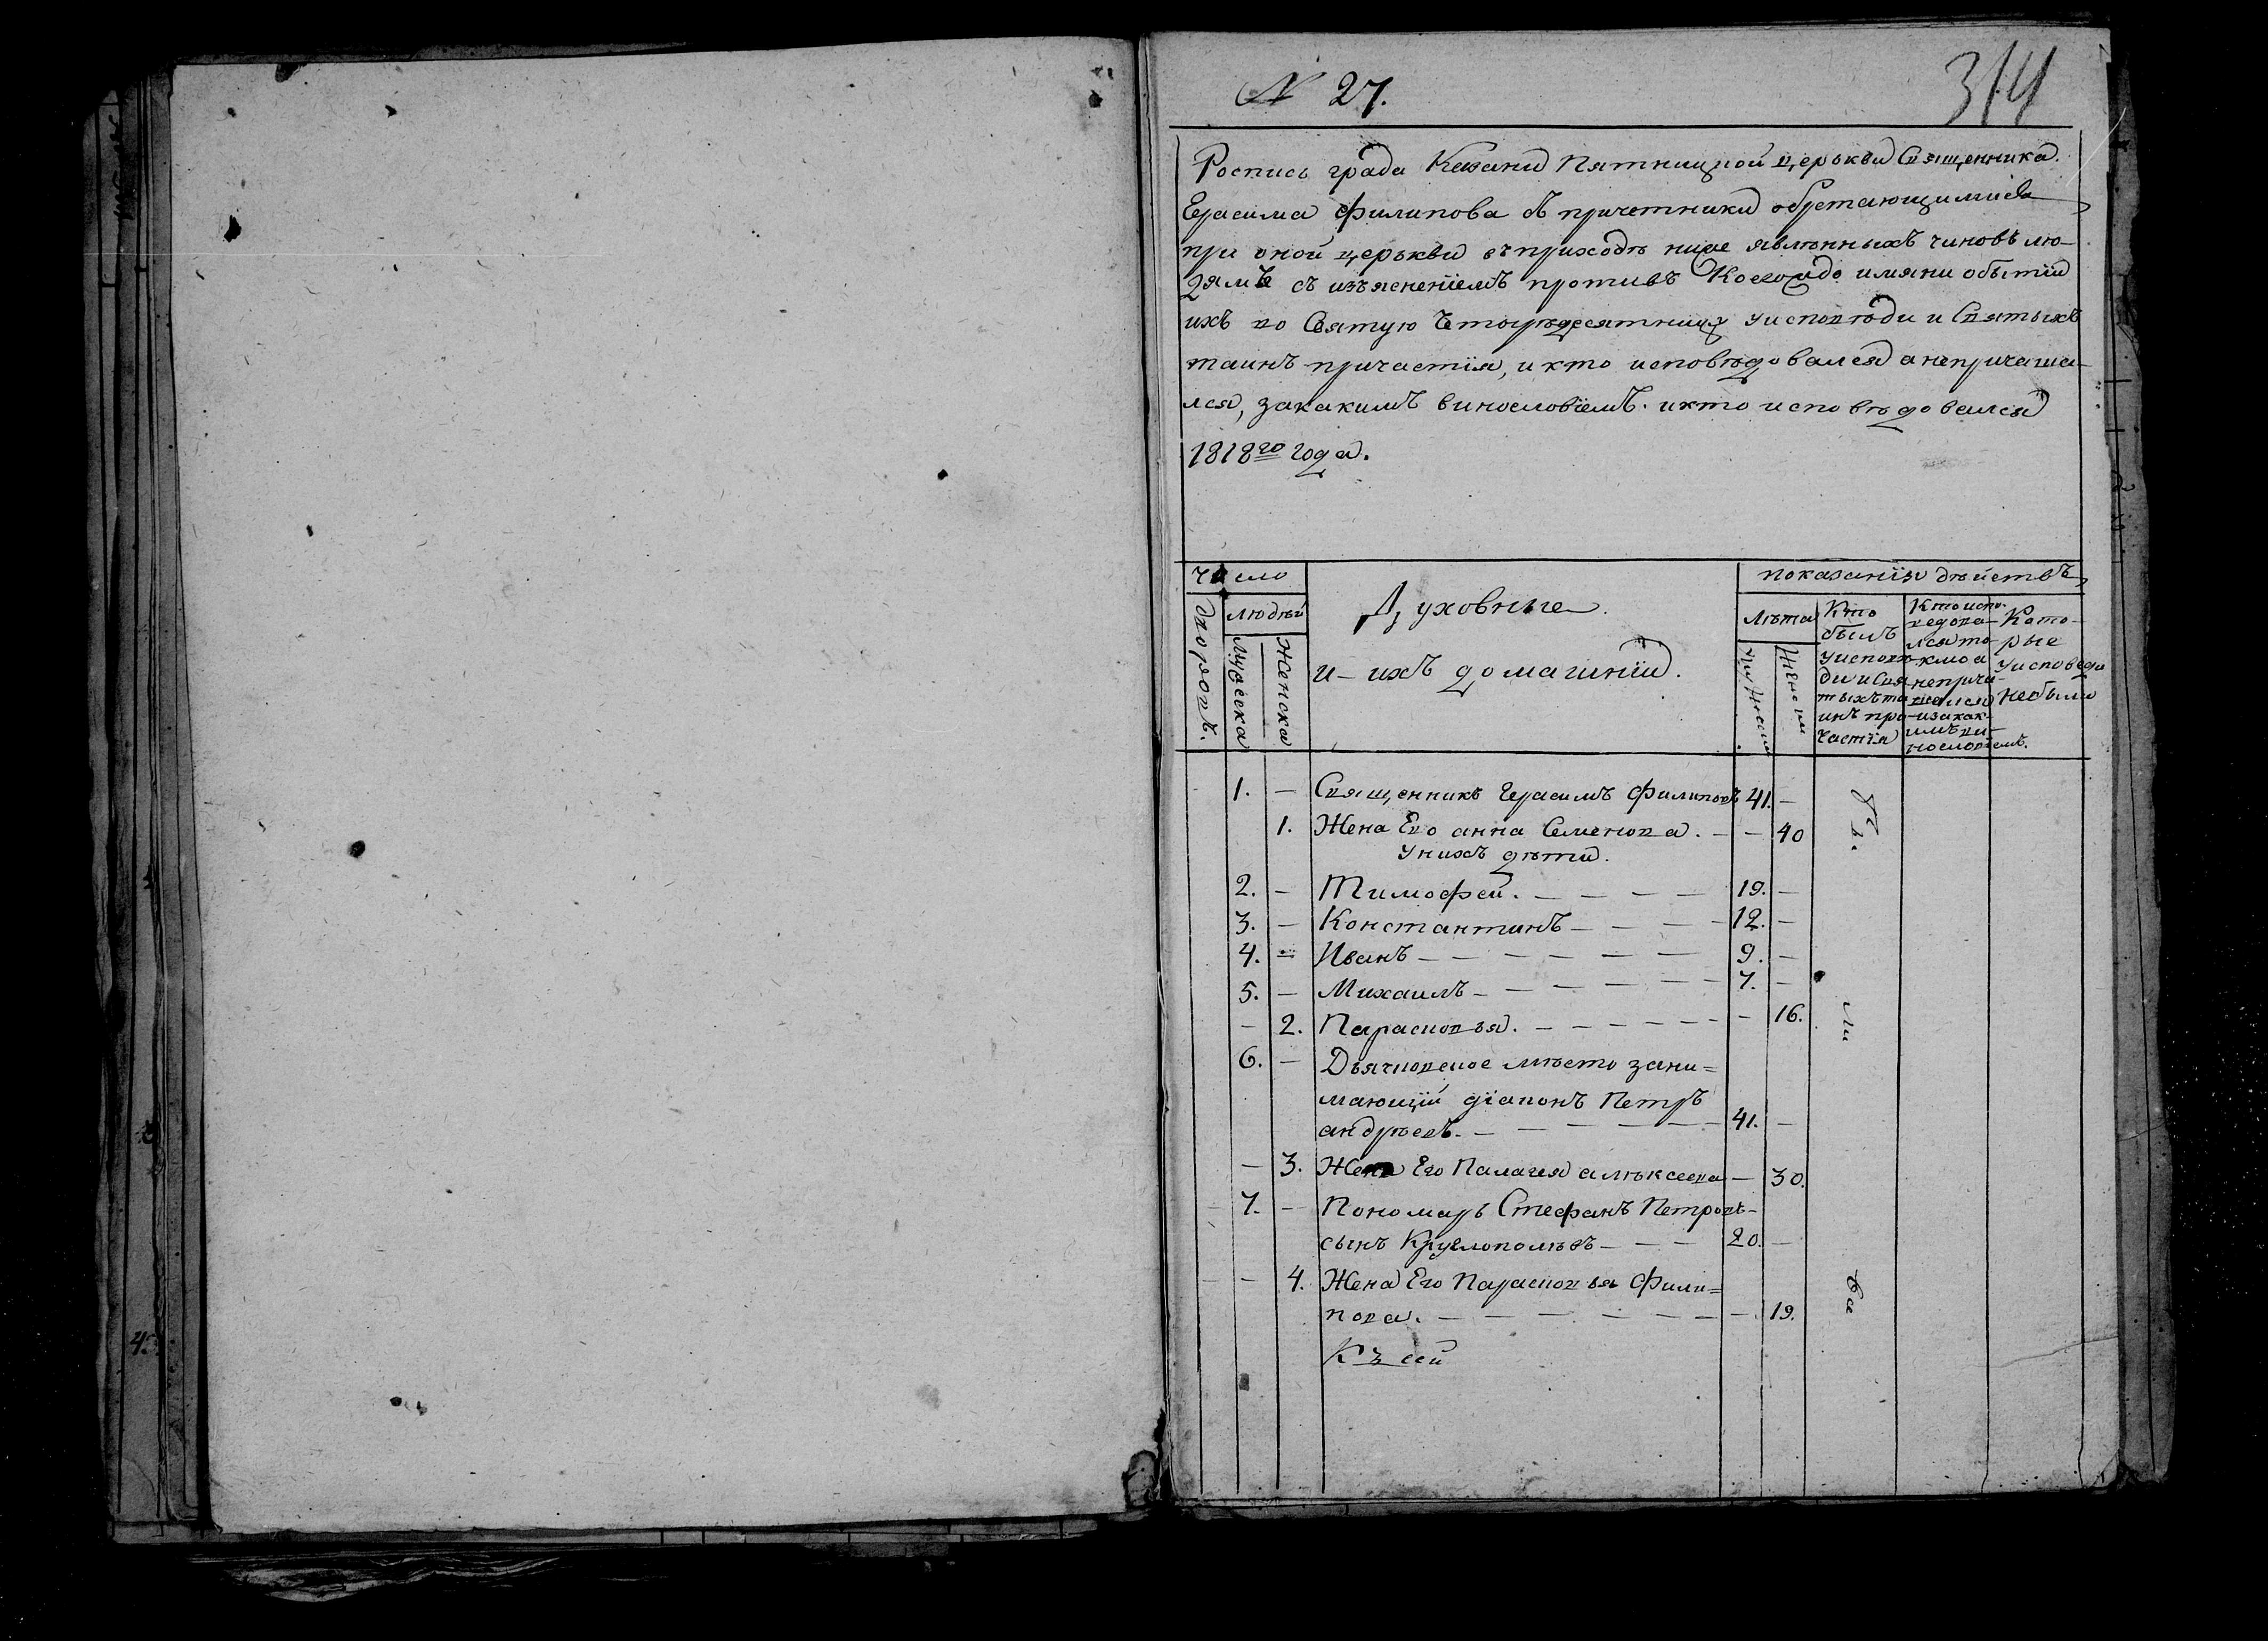 N 27.
314
Роспись града Казани Пятницкой церькви Священника
Герасима Филипова съ причетники обретающимися
при оной церькви въ приходѣ ниже явленныхъ чиновъ лю-
дямъ съ изъяснениемъ противъ Коегождо имяни о бытии
ихъ во Святую Четыредесятницу уисповѣди и Святыхъ
таинъ причастія, и кто исповѣдовался а непричаща-
лся, закакимъ винословіемъ. икто исповѣдовался
1818го года.
число
показанія дѣйствъ
дворовъ.
людѣй
Мужеска
Женска
Духовные
и-ихъ домашніи.
лѣта
мужеска
женска
Кто былъ уисповѣди и Святыхъ таинъ причастія
Кто исповедовался токмо а непричащался и за какимъ винословіемъ.
Которые уисповеди небыли
1. — Священникъ Герасимъ Филиповъ 41. —
1. Жена Его анна Семенова. — — 40
унихъ дѣти.
2. — Тимофей. — — — — 19. —
3. — Константинъ — — — — 12. —
4. — Иванъ — — — — — — 9. —
5. — Михаилъ — — — — — — 7. —
— 2. Парасковья. — — — — — — — 16.
6. — Дьячковское мѣсто зани=
мающій діаконъ Петръ
андрѣевъ. — — — — — — 41. —
— 3. Жена Его Палагея алѣксеева — 30.
7. — Пономарь Стефанъ Петровъ-
сынъ Круглополѣвъ — — — 20. —
— — 4. Жена Его Парасковья Фили=
пова. — — — — — — — 19.
Къ сей
бы.
ли